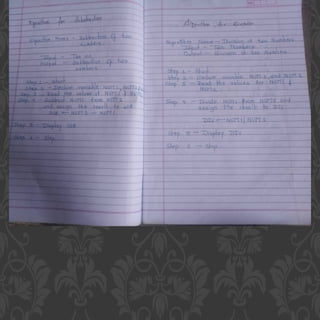 Algorithm for Subtraction
Algorithm Name - Subtraction of two numbers
Input - Two no.
Output - Subtraction of two numbers
Step 1 - Start
Step 2 - Declare variable NUM1, NUM2
Step 3 - Read the values of NUM1 & NUM2
Step 4 - Subtract NUM1 from NUM2
and assign the result to
NUM1 - NUM2
Step 5 - Display
Step 6 - Stop
Algorithm for Division
Algorithm Name - Division of two Numbers
Input - Two Numbers
Output - Division of two numbers
Step 1 - Start
Step 2 - Declare variable NUM1, and NUM2
Step 3 - Read the values for NUM1 &
NUM2
Step 4 - Divide NUM1 from NUM2 and
assign the result to DIV
DIV ← NUM1/NUM2
Step 5 - Display DIV
Step 6 - Stop